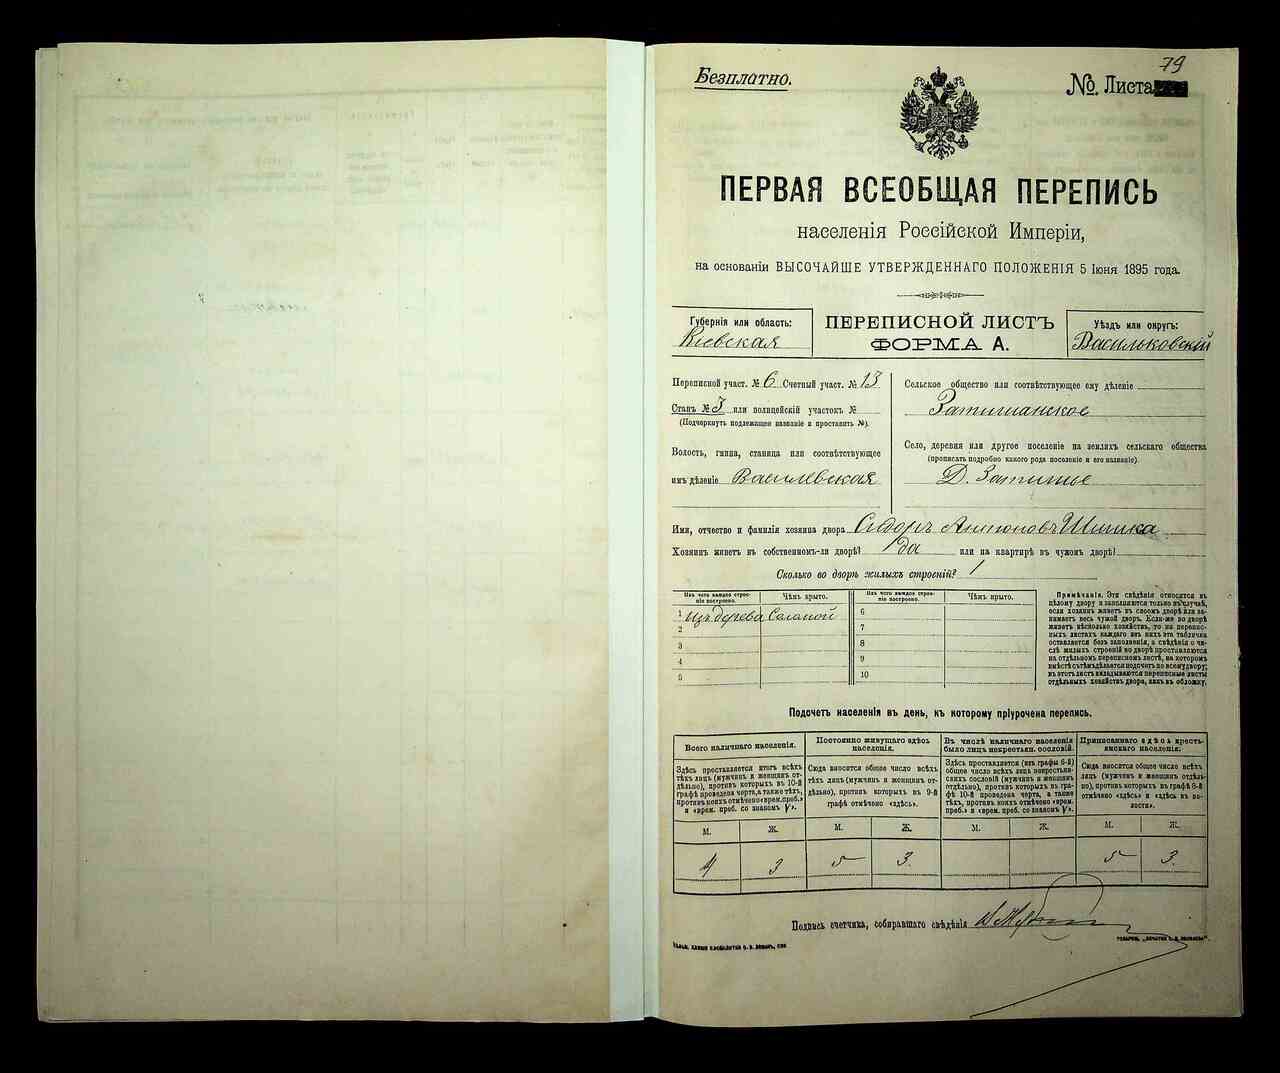 79
Безплатно.
№. Листа
ПЕРВАЯ ВСЕОБЩАЯ ПЕРЕПИСЬ
населенія Россійской Имперіи,
на основаніи ВЫСОЧАЙШЕ УТВЕРЖДЕННАГО ПОЛОЖЕНІЯ 5 Іюня 1895 года.
Губернія или область:
Кіевская
ПЕРЕПИСНОЙ ЛИСТЪ
ФОРМА А.
Уѣздъ или округъ:
Васильковскій
Переписной участ. № 6 Счетный участ. № 13
Станъ № 3 или полицейскій участокъ №
(Подчеркнуть подлежащее названіе и проставить №).
Волость, гмина, станица или соотвѣтствующее
имъ дѣленіе Василевская
Сельское общество или соотвѣтствующее ему дѣленіе
Затишанское
Село, деревня или другое поселеніе на земляхъ сельскаго общества
(прописать подробно какого рода поселеніе и его названіе).
Д. Затишье
Имя, отчество и фамилія хозяина двора Сидоръ Антоновъ Шишка
Хозяинъ живетъ въ собственномъ-ли дворѣ? Да или на квартирѣ въ чужомъ дворѣ?
Сколько во дворѣ жилыхъ строеній? 1
Изъ чего каждое строеніе построено. Чѣмъ крыто. Изъ чего каждое строеніе построено. Чѣмъ крыто.
1 изъ дерева Соломой 6
2 7
3 8
4 9
5 10
Примѣчанія. Эти свѣдѣнія относятся къ
цѣлому двору и заполняются только въ случаѣ,
если хозяинъ живетъ въ своемъ дворѣ или занимаетъ
весь чужой дворъ. Если-же во дворѣ
живетъ нѣсколько хозяйствъ, то на переписныхъ
листахъ каждаго изъ нихъ эта табличка
оставляется безъ заполненія, а свѣдѣнія о числѣ
жилыхъ строеній во дворѣ проставляются
на отдѣльномъ переписномъ листѣ, на которомъ
вмѣстѣ съ тѣмъ дѣлается подсчетъ по всему двору;
въ этотъ листъ вкладываются переписные листы
отдѣльныхъ хозяйствъ двора, какъ въ обложку.
Подсчетъ населенія въ день, къ которому пріурочена перепись.
Всего наличнаго населенія.
Здѣсь проставляется итогъ всѣхъ
тѣхъ лицъ (мужчинъ и женщинъ отдѣльно),
противъ которыхъ въ 10-й
графѣ проведена черта, а также тѣхъ,
противъ коихъ отмѣчено «врем. преб.»
и «врем. преб. со знакомъ V».
Постоянно живущаго здѣсь населенія.
Сюда вносится общее число всѣхъ
тѣхъ лицъ (мужчинъ и женщинъ отдѣльно),
противъ которыхъ въ 9-й
графѣ отмѣчено «здѣсь».
Въ числѣ наличнаго населенія
было лицъ некрестьян. сословій.
Здѣсь проставляется (изъ графы 6-й)
общее число всѣхъ лицъ некрестьянскихъ
сословій (мужчинъ и женщинъ
отдѣльно), противъ которыхъ въ графѣ
10-й проведена черта, а также
тѣхъ, противъ коихъ отмѣчено «врем.
преб.» и «врем. преб. со знакомъ V».
Приписаннаго здѣсь крестьянскаго населенія:
Сюда вносится общее число всѣхъ
лицъ (мужчинъ и женщинъ отдѣльно),
противъ которыхъ въ графѣ 8-й
отмѣчено «здѣсь» и «здѣсь въ волости».
М. Ж. М. Ж. М. Ж. М. Ж.
4 3 5 3 5 3
Подпись счетчика, собиравшаго свѣдѣнія